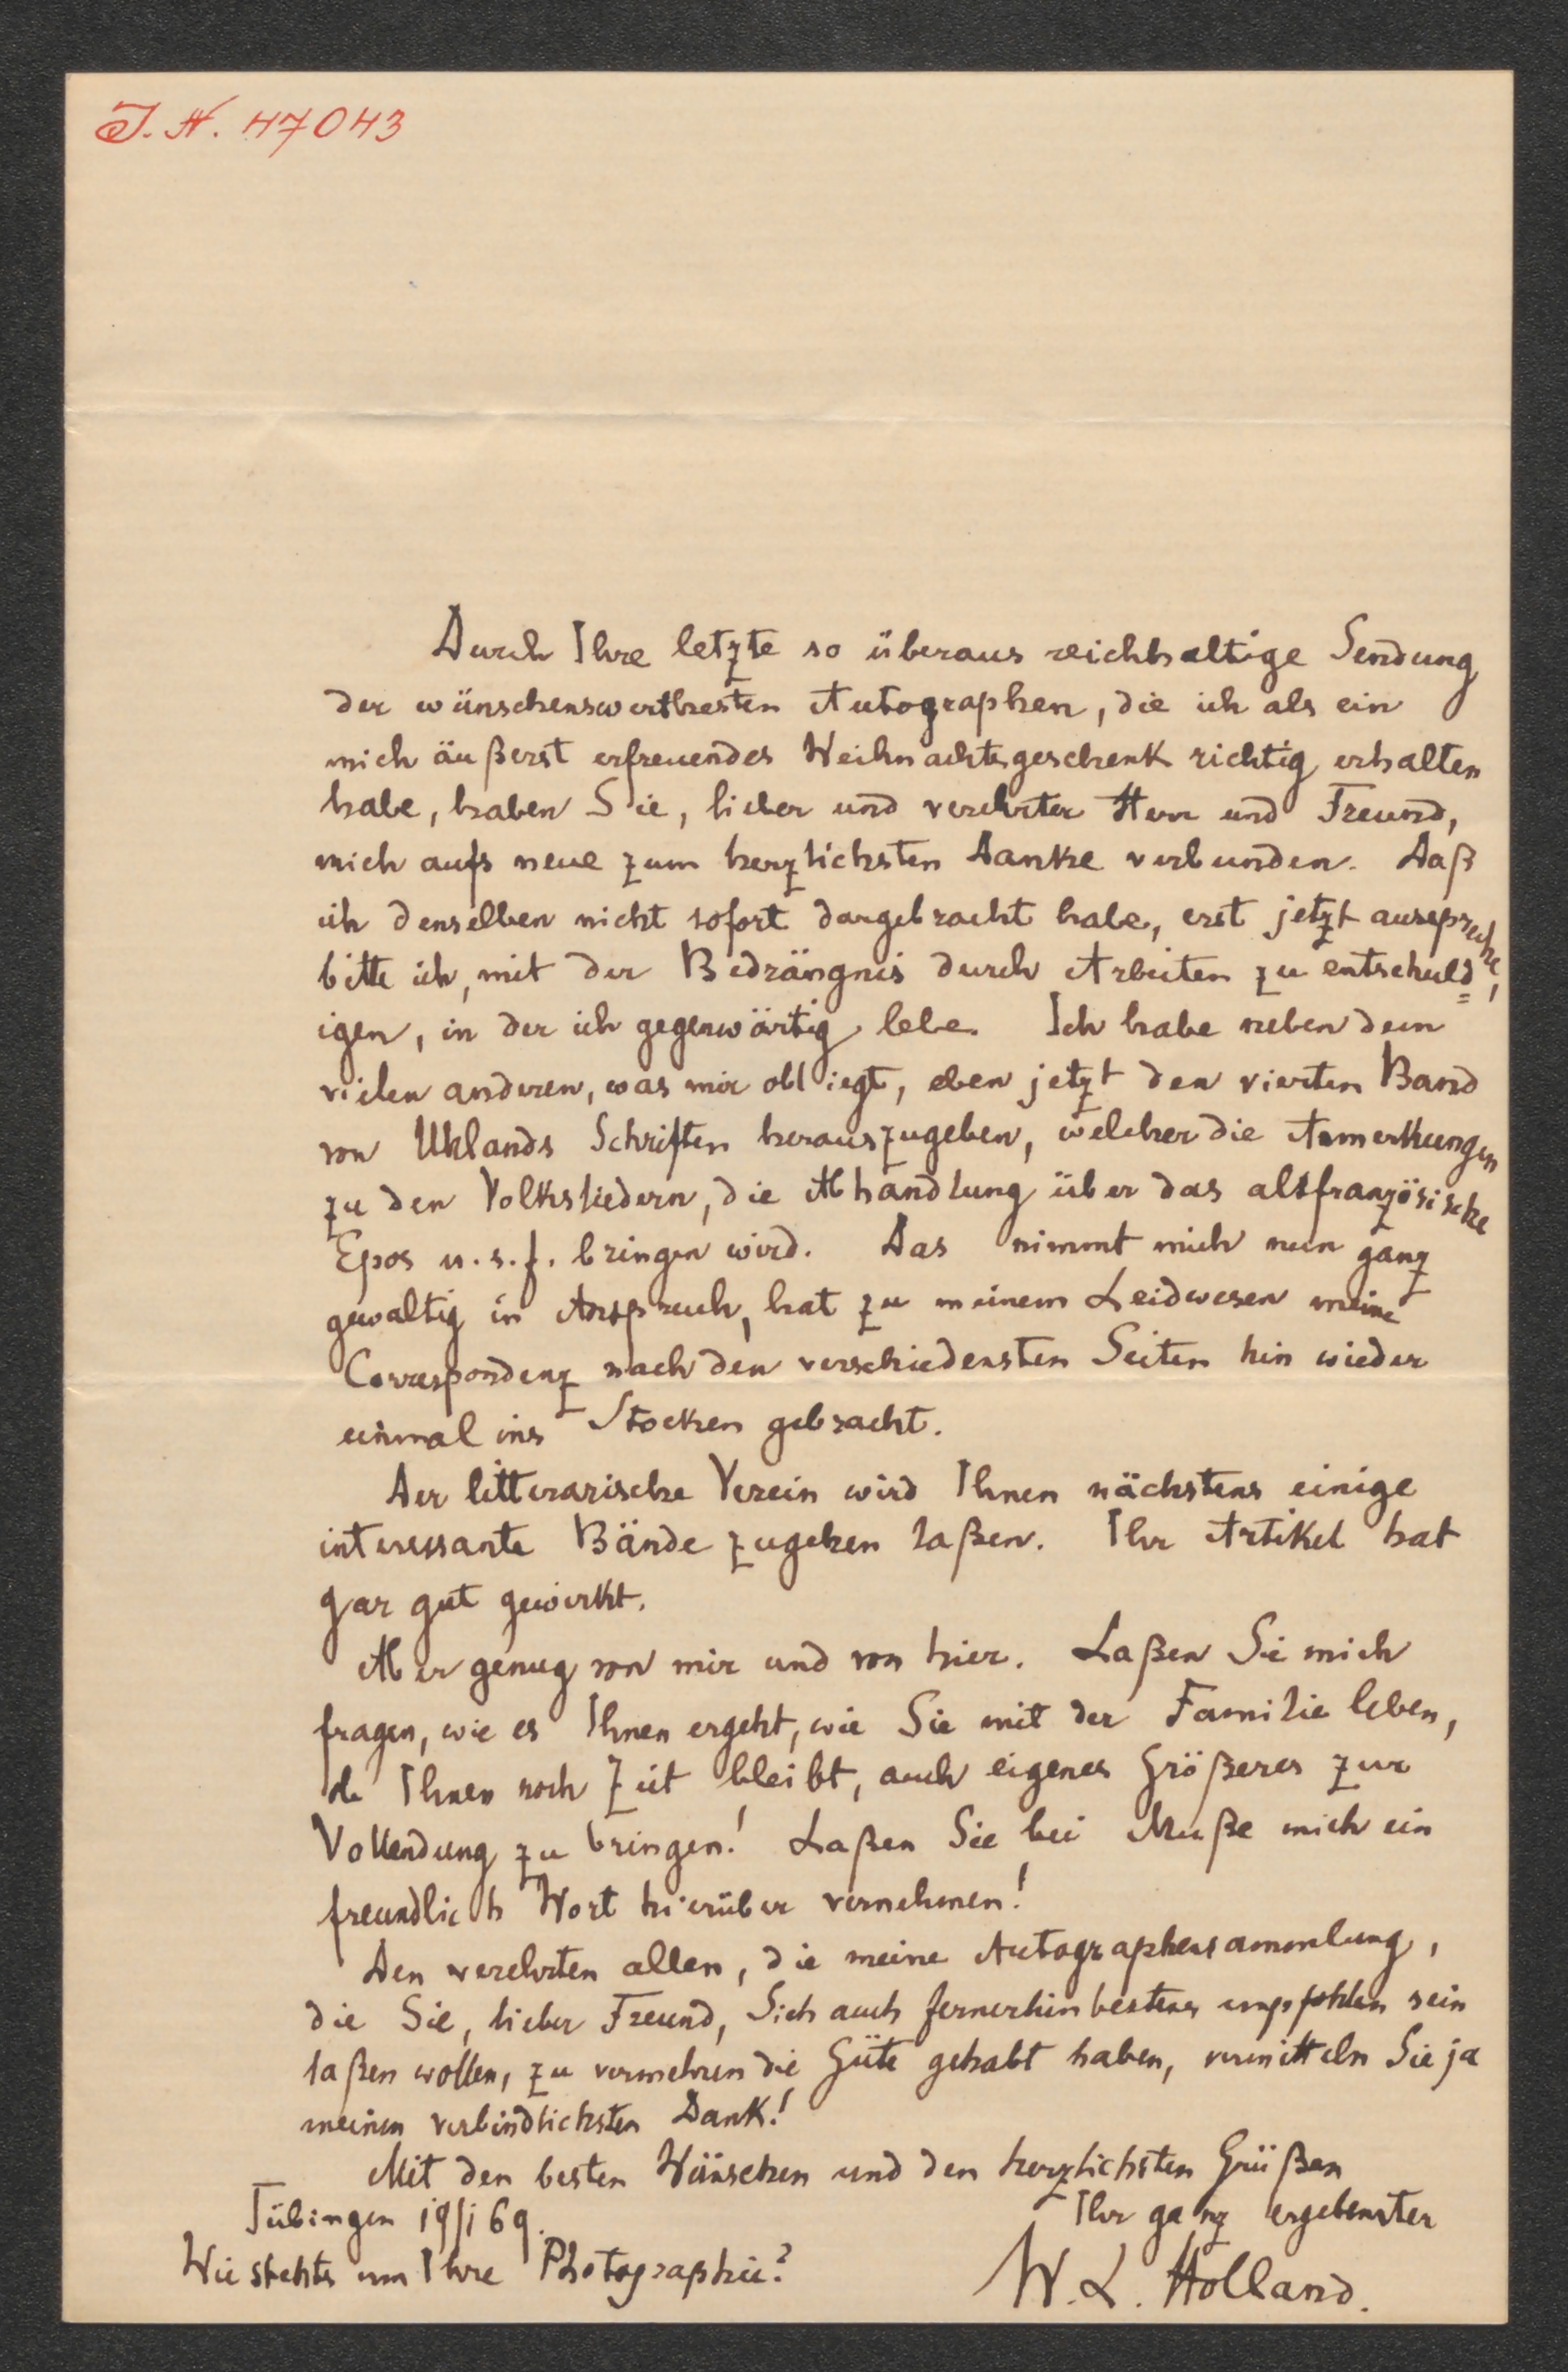 J. N. 47043
Durch Ihre letzte so überaus reichhaltige Sendung
der wünschenswerthesten Autographen, die ich als ein
mich äußerst erfreuendes Weihnachtsgeschenk richtig erhalten
habe, haben Sie, lieber und verehrter Herr und Freund,
mich aufs neue zum herzlichsten Danke verbunden. Daß
ich denselben nicht sofort dargebracht habe, erst jetzt ausspreche,
bitte ich, mit der Bedrängnis durch Arbeiten zu entschuld=
igen, in der ich gegenwärtig lebe. Ich habe neben dem
vielen anderen, was mir obliegt, eben jetzt den vierten Band
von Uhlands Schriften herauszugeben, welcher die Anmerkungen
zu den Volksliedern, die Abhandlung über das altfranzösische
Epos u. s. f. bringen wird. Das nimmt mich nun ganz
gewaltig in Anspruch, hat zu meinem Leidwesen meine
Correspondenz nach den verschiedensten Seiten hin wieder
einmal ins Stocken gebracht.
Der litterarische Verein wird Ihnen nächstens einige
interessante Bände zugehen laßen. Ihr Artikel hat
gar gut gewirkt.
Aber genug von mir und von hier. Laßen Sie mich
fragen, wie es Ihnen ergeht, wie Sie mit der Familie leben,
ob Ihnen noch Zeit bleibt, auch eigenes Größeres zur
Vollendung zu bringen! Laßen Sie bei Muße mich ein
freundlich Wort hierüber vernehmen!
Den verehrten allen, die meine Autographensammlung,
die Sie, lieber Freund, Sich auch fernerhin bestens empfohlen sein
laßen wollen, zu vermehren die Güte gehabt haben, vermitteln Sie ja
meinen verbindlichsten Dank!
Mit den besten Wünschen und den herzlichsten Grüßen
Tübingen 19/1 69. Ihr ganz ergebenster
Wie stehts um Ihre Photographie? W. L. Holland.